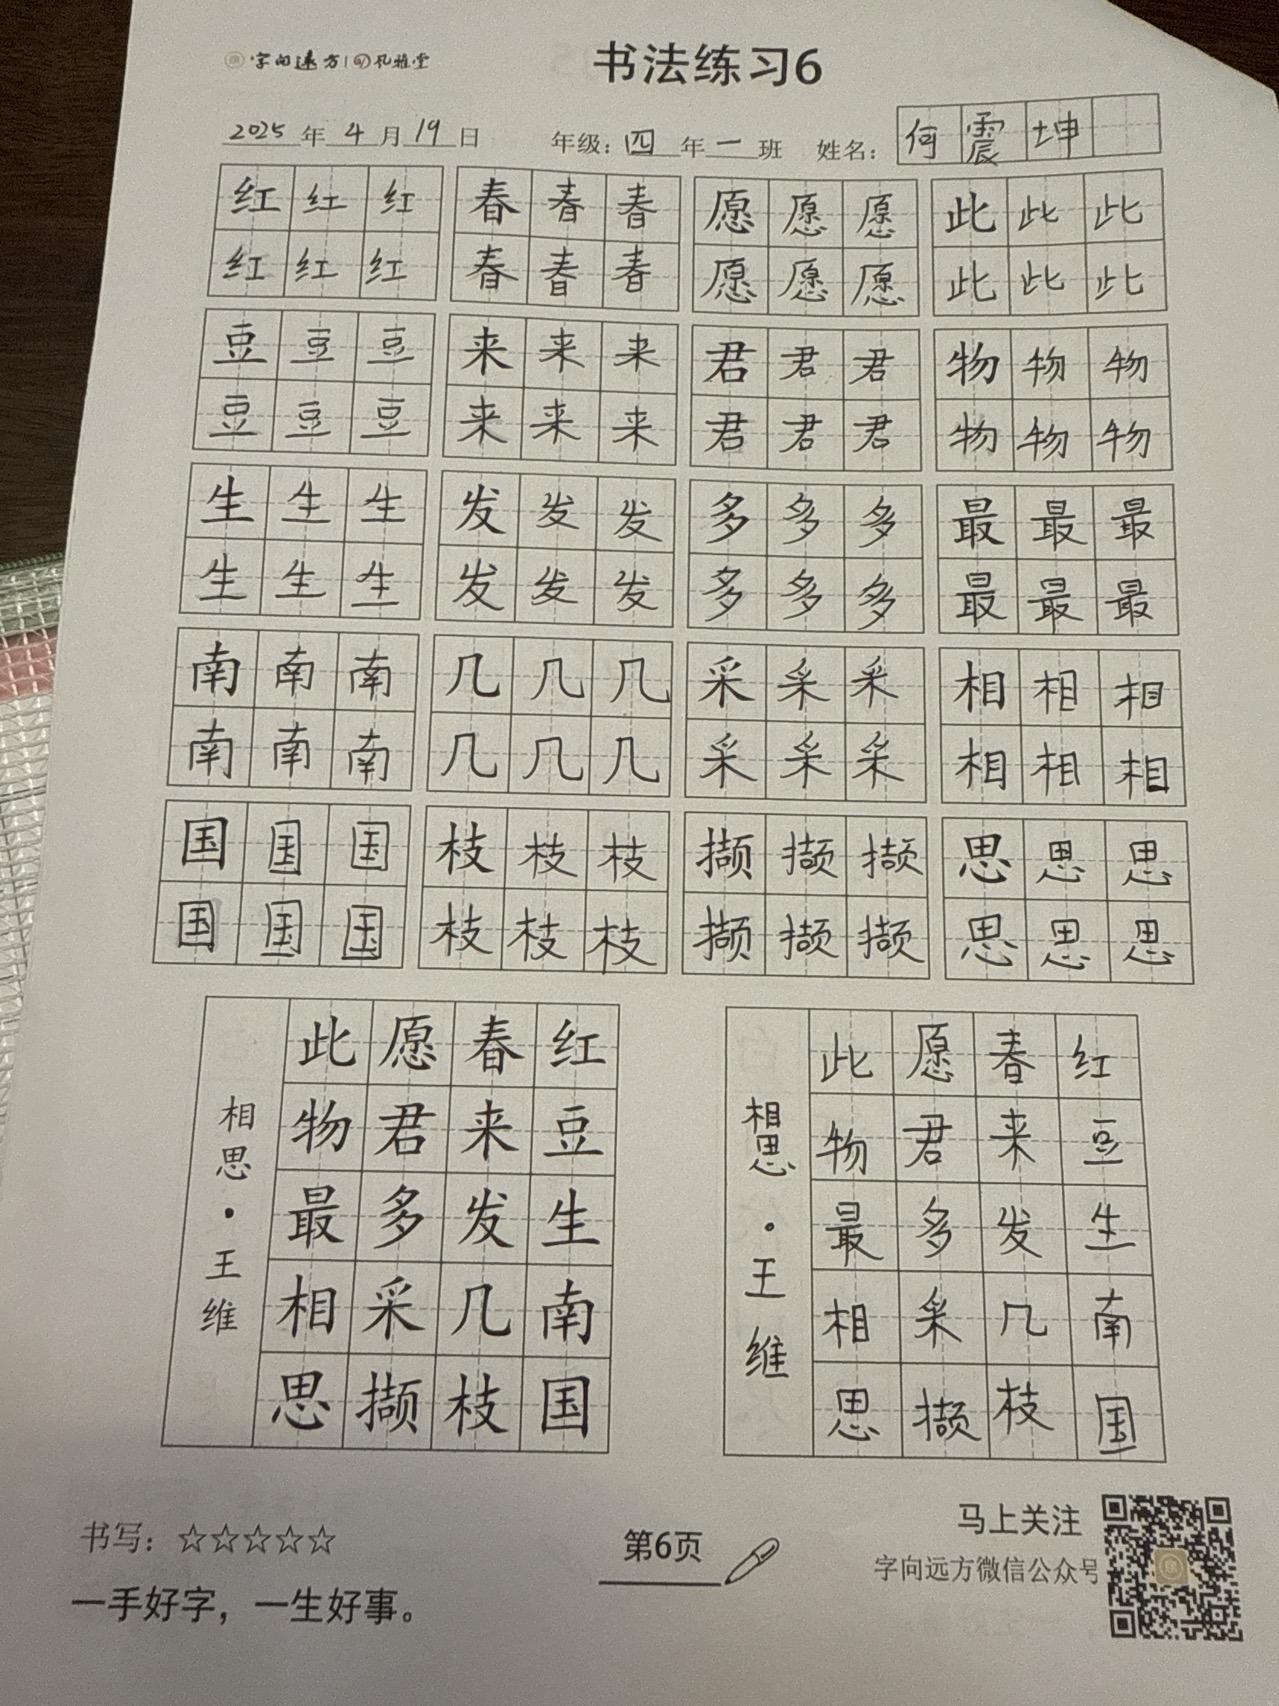 字向远方 孔雅堂
书法练习6
2025 年 4 月 19 日 年级：四 年 一 班 姓名：何震坤
红红红 春春春 愿愿愿 此此此
红红红 春春春 愿愿愿 此此此
豆豆豆 来来来 君君君 物物物
豆豆豆 来来来 君君君 物物物
生生生 发发发 多多多 最最最
生生生 发发发 多多多 最最最
南南南 几几几 采采采 相相相
南南南 几几几 采采采 相相相
国国国 枝枝枝 撷撷撷 思思思
国国国 枝枝枝 撷撷撷 思思思
红豆生南国
春来发几枝
愿君多采撷
此物最相思
相思·王维
红豆生南国
春来发几枝
愿君多采撷
此物最相思
相思·王维
书写：☆☆☆☆☆
一手好字，一生好事。
第6页
马上关注
字向远方微信公众号